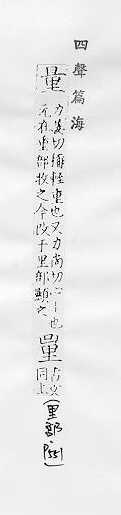 四聲篇海
量力姜切稱輕重也又力尚切斗斗也
元在重部收之今改于里部顯之
量古文同上
(里部.